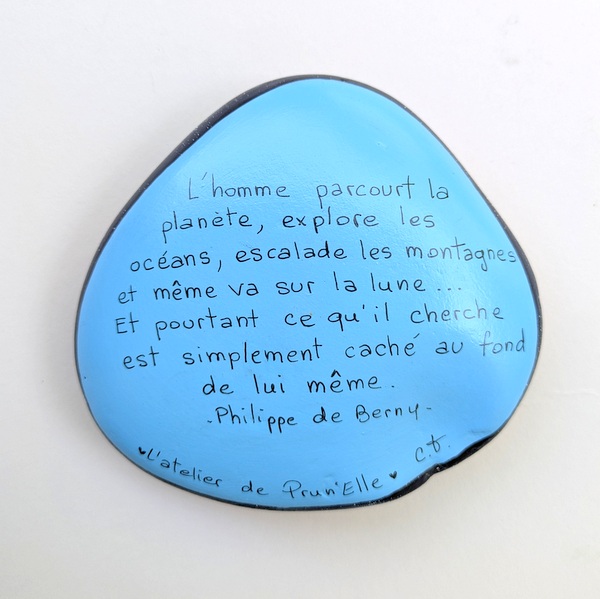 L'homme parcourt la
planète, explore les
océans, escalade les montagnes
et même va sur la lune...
Et pourtant ce qu'il cherche
est simplement caché au fond
de lui même.
-Philippe de Berny-
♥L'atelier de Prun'Elle♥ c.t.